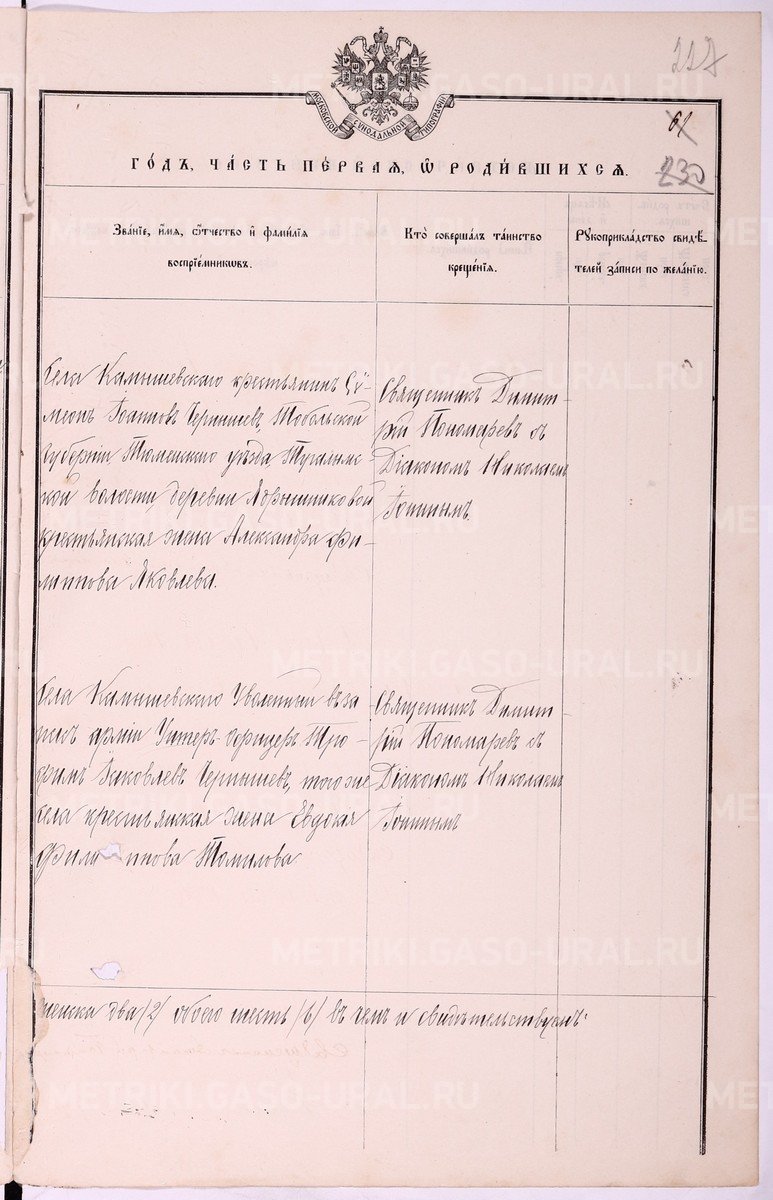 227
МОСКОВСКОЙ СѴНОДАЛЬНОЙ ТИПОГРАФІИ
61
230
ГО́ДЪ, ЧА́СТЬ ПЕ́РВАЯ, Ѿ РОДИ́ВШИХСѦ.
Зва́нїе, и҆́мѧ, ѻ҆́тчество и҆ фами́лїѧ
воспрїе́мникѡвъ.
Кто̀ соверша́лъ та́инство
креще́нїѧ.
Рꙋкоприкла́дство свидѣ́-
телей за́писи по жела́нїю.
Села Камышевскаго крестьянинъ Сѵ-
меонъ Іоанновъ Чернышевъ, Тобольской
губерніи Тюменскаго уѣзда, Тугулым-
ской волости, деревни
крестьянская жена Александра Фи-
липпова Яковлева.
Священникъ Димит-
рій Пономаревъ съ
Діакономъ Николаемъ
Села Камышевскаго Уволенный въ за
пасъ арміи Унтеръ-офицеръ Тро-
фимъ Іаковлевъ Чернышевъ, того же
села крестьянская жена Евдокія
Филиппова Томилова.
Священникъ Димит-
рій Пономаревъ съ
Діакономъ Николаемъ
женска два /2/ обоего шесть /6/ въ чемъ и свидѣтельствуемъ:
METRIKI.GASO-URAL.RU